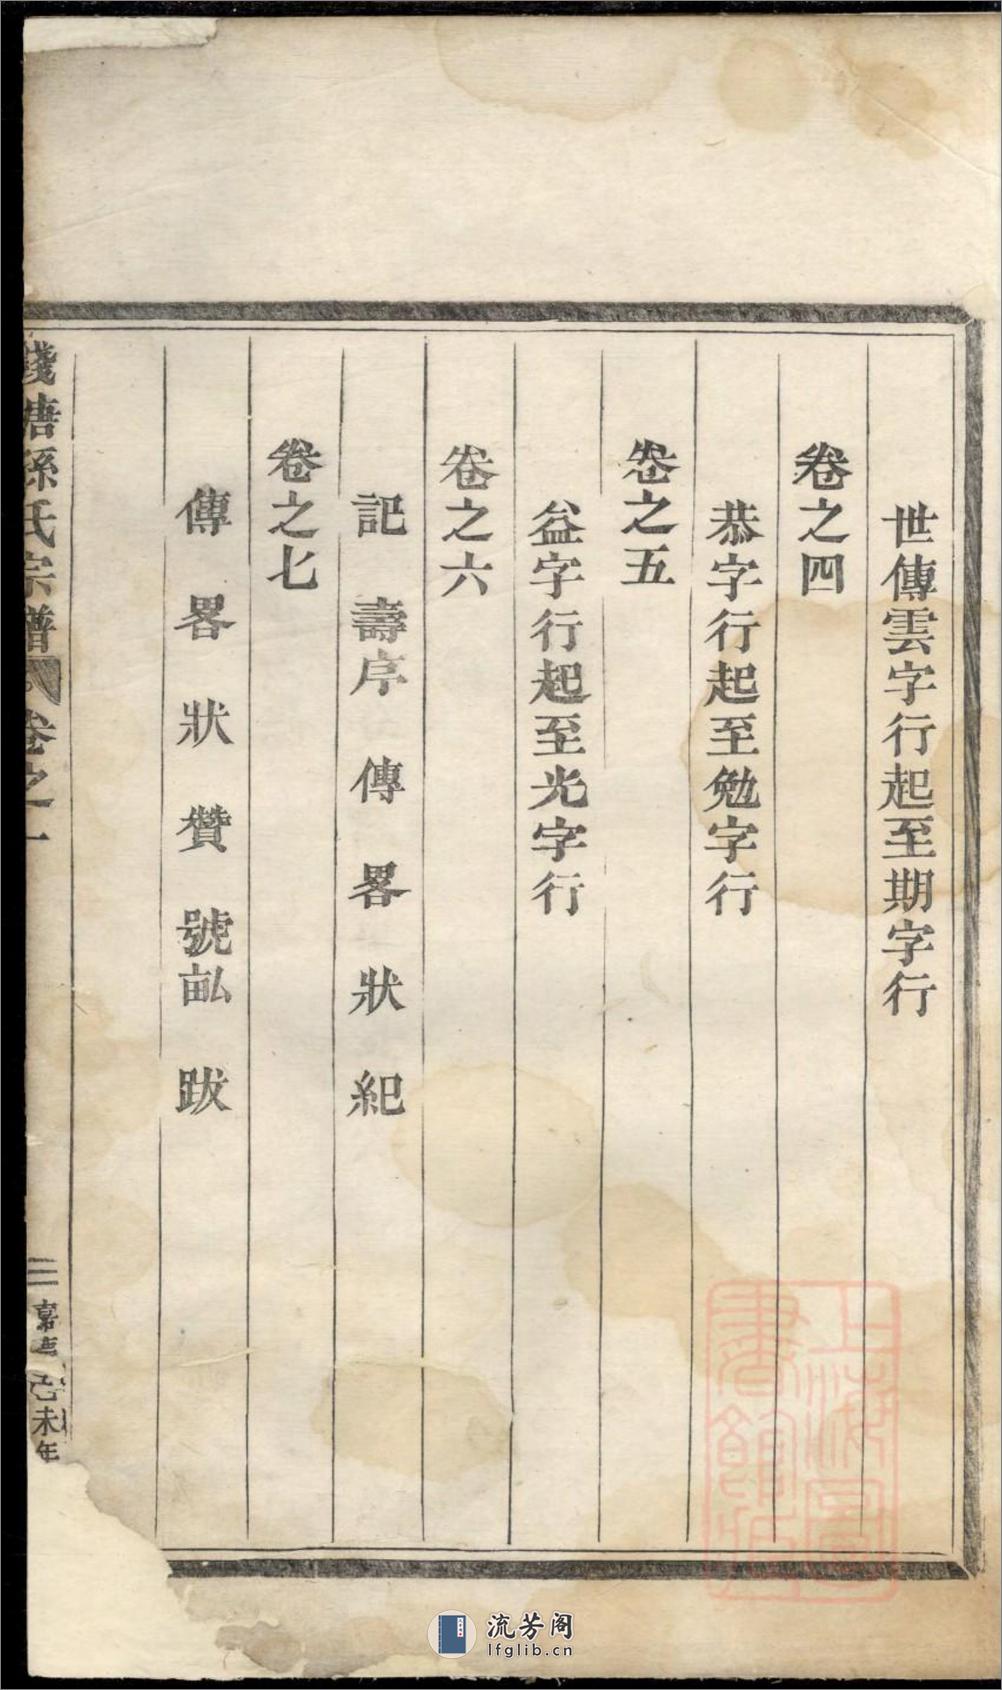 世傳雲字行起至期字行
卷之四
恭字行起至勉字行
卷之五
益字行起至光字行
卷之六
記 壽序 傳 畧 狀 紀
卷之七
傳 畧 狀 贊 號畝 跋
錢塘孫氏宗譜 卷之一 三 嘉 己未年
上海圖書館藏
流芳阁
lfglib.cn